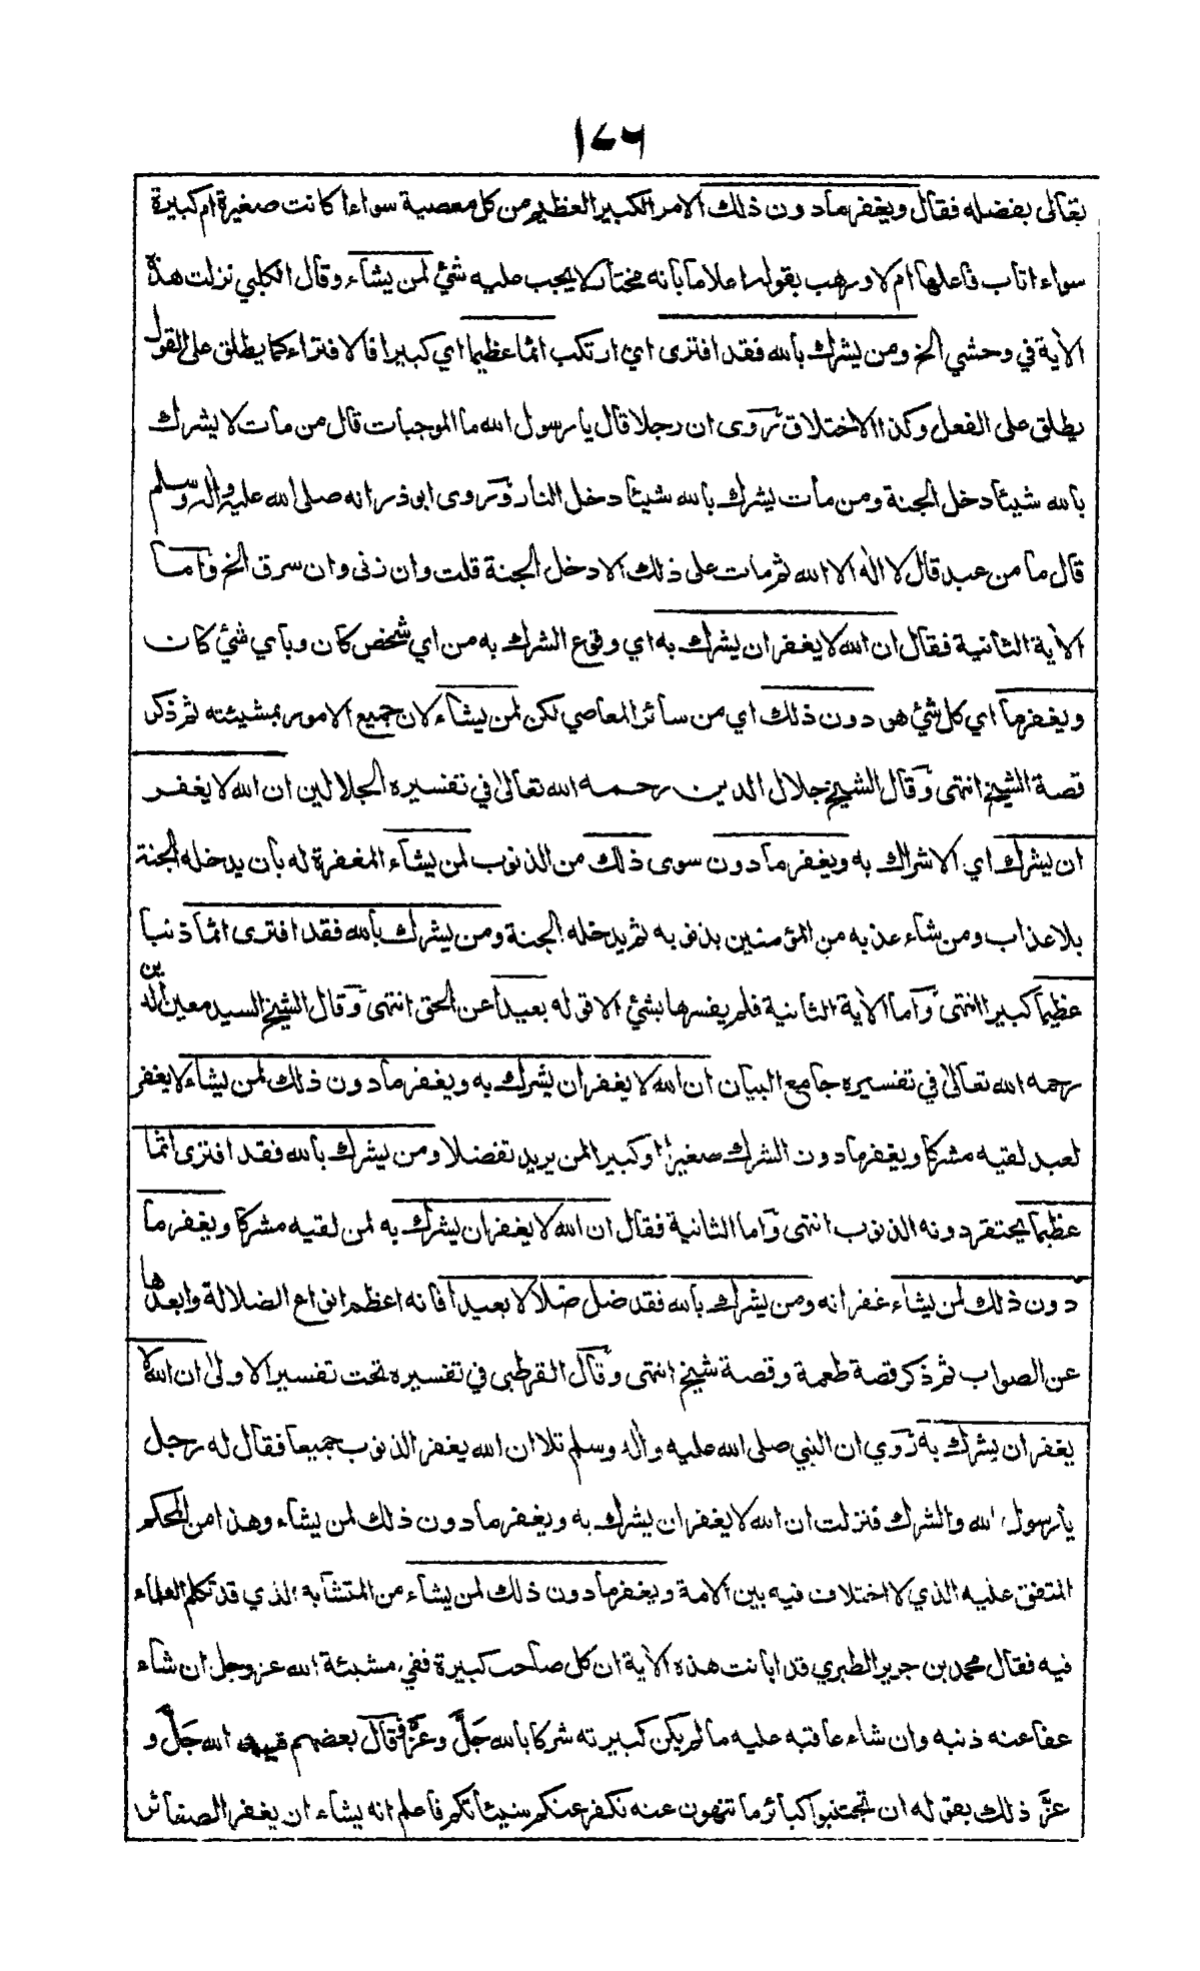 ١٧٦
تعالى بفضله فقال ويغفر ما دون ذلك الامر الكبير العظيم من كل معصية سواء كانت صغيرة ام كبيرة
سواء اتاب فاعلها ام لا ورهب بقوله اعلاما بانه مختار لا يجب عليه شئ لمن يشاء وقال الكلبي نزلت هذه
الآية في وحشي الخ ومن يشرك بالله فقد افترى اي ارتكب اثما عظيما اي كبيرا فالافتراء كما يطلق على القول
يطلق على الفعل وكذا الاختلاق روى ان رجلا قال يا رسول الله ما الموجبات قال من مات لا يشرك
بالله شيئا دخل الجنة ومن مات يشرك بالله شيئا دخل النار وروى ابو ذر انه صلى الله عليه واله وسلم
قال ما من عبد قال لا اله الا الله ثم مات على ذلك الا دخل الجنة قلت وان زنى وان سرق الخ واما
الآية الثانية فقال ان الله لا يغفر ان يشرك به اي وقوع الشرك به من اي شخص كان وباي شئ كان
ويغفر ما اي كل شئ هو دون ذلك اي من سائر المعاصي لكن لمن يشاء لان جميع الامور بمشيئته ثم ذكر
قصة الشيخ انتهى وقال الشيخ جلال الدين رحمه الله تعالى في تفسيره الجلالين ان الله لا يغفر
ان يشرك اي الاشراك به ويغفر ما دون سوى ذلك من الذنوب لمن يشاء المغفرة له بان يدخله الجنة
بلا عذاب ومن شاء عذبه من المؤمنين بذنوبه ثم يدخله الجنة ومن يشرك بالله فقد افترى اثما ذنبا
عظيما كبيرا انتهى واما الآية الثانية فلم يفسرها بشئ الا قوله بعيدا عن الحق انتهى وقال الشيخ السيد معين الدين
رحمه الله تعالى في تفسيره جامع البيان ان الله لا يغفر ان يشرك به ويغفر ما دون ذلك لمن يشاء لا يغفر
لعبد لقيه مشركا ويغفر ما دون الشرك صغيرا او كبيرا لمن يريد تفضلا ومن يشرك بالله فقد افترى اثما
عظيما يحتقر دونه الذنوب انتهى واما الثانية فقال ان الله لا يغفر ان يشرك به لمن لقيه مشركا ويغفر ما
دون ذلك لمن يشاء غفرانه ومن يشرك بالله فقد ضل ضلالا بعيدا فانه اعظم انواع الضلالة وابعدها
عن الصواب ثم ذكر قصة طعمة وقصة شيخ انتهى وقال القرطبي في تفسيره تحت تفسير الاولى ان الله لا
يغفر ان يشرك به روي ان النبي صلى الله عليه واله وسلم تلا ان الله يغفر الذنوب جميعا فقال له رجل
يا رسول الله والشرك فنزلت ان الله لا يغفر ان يشرك به ويغفر ما دون ذلك لمن يشاء وهذا من المحكم
المتفق عليه الذي لا اختلاف فيه بين الامة ويغفر ما دون ذلك لمن يشاء من المتشابه الذي قد تكلم العلماء
فيه فقال محمد بن جرير الطبري قد ابانت هذه الآية ان كل صاحب كبيرة ففي مشيئة الله عز وجل ان شاء
عفا عنه ذنبه وان شاء عاقبه عليه ما لم يكن كبيرته شركا بالله جَلَّ وعَزَّ فقال بعضهم الله جَلَّ و
عَزَّ ذلك بقوله ان تجتنبوا كبائر ما تنهون عنه نكفر عنكم سيئاتكم فاعلم انه يشاء ان يغفر الصغائر